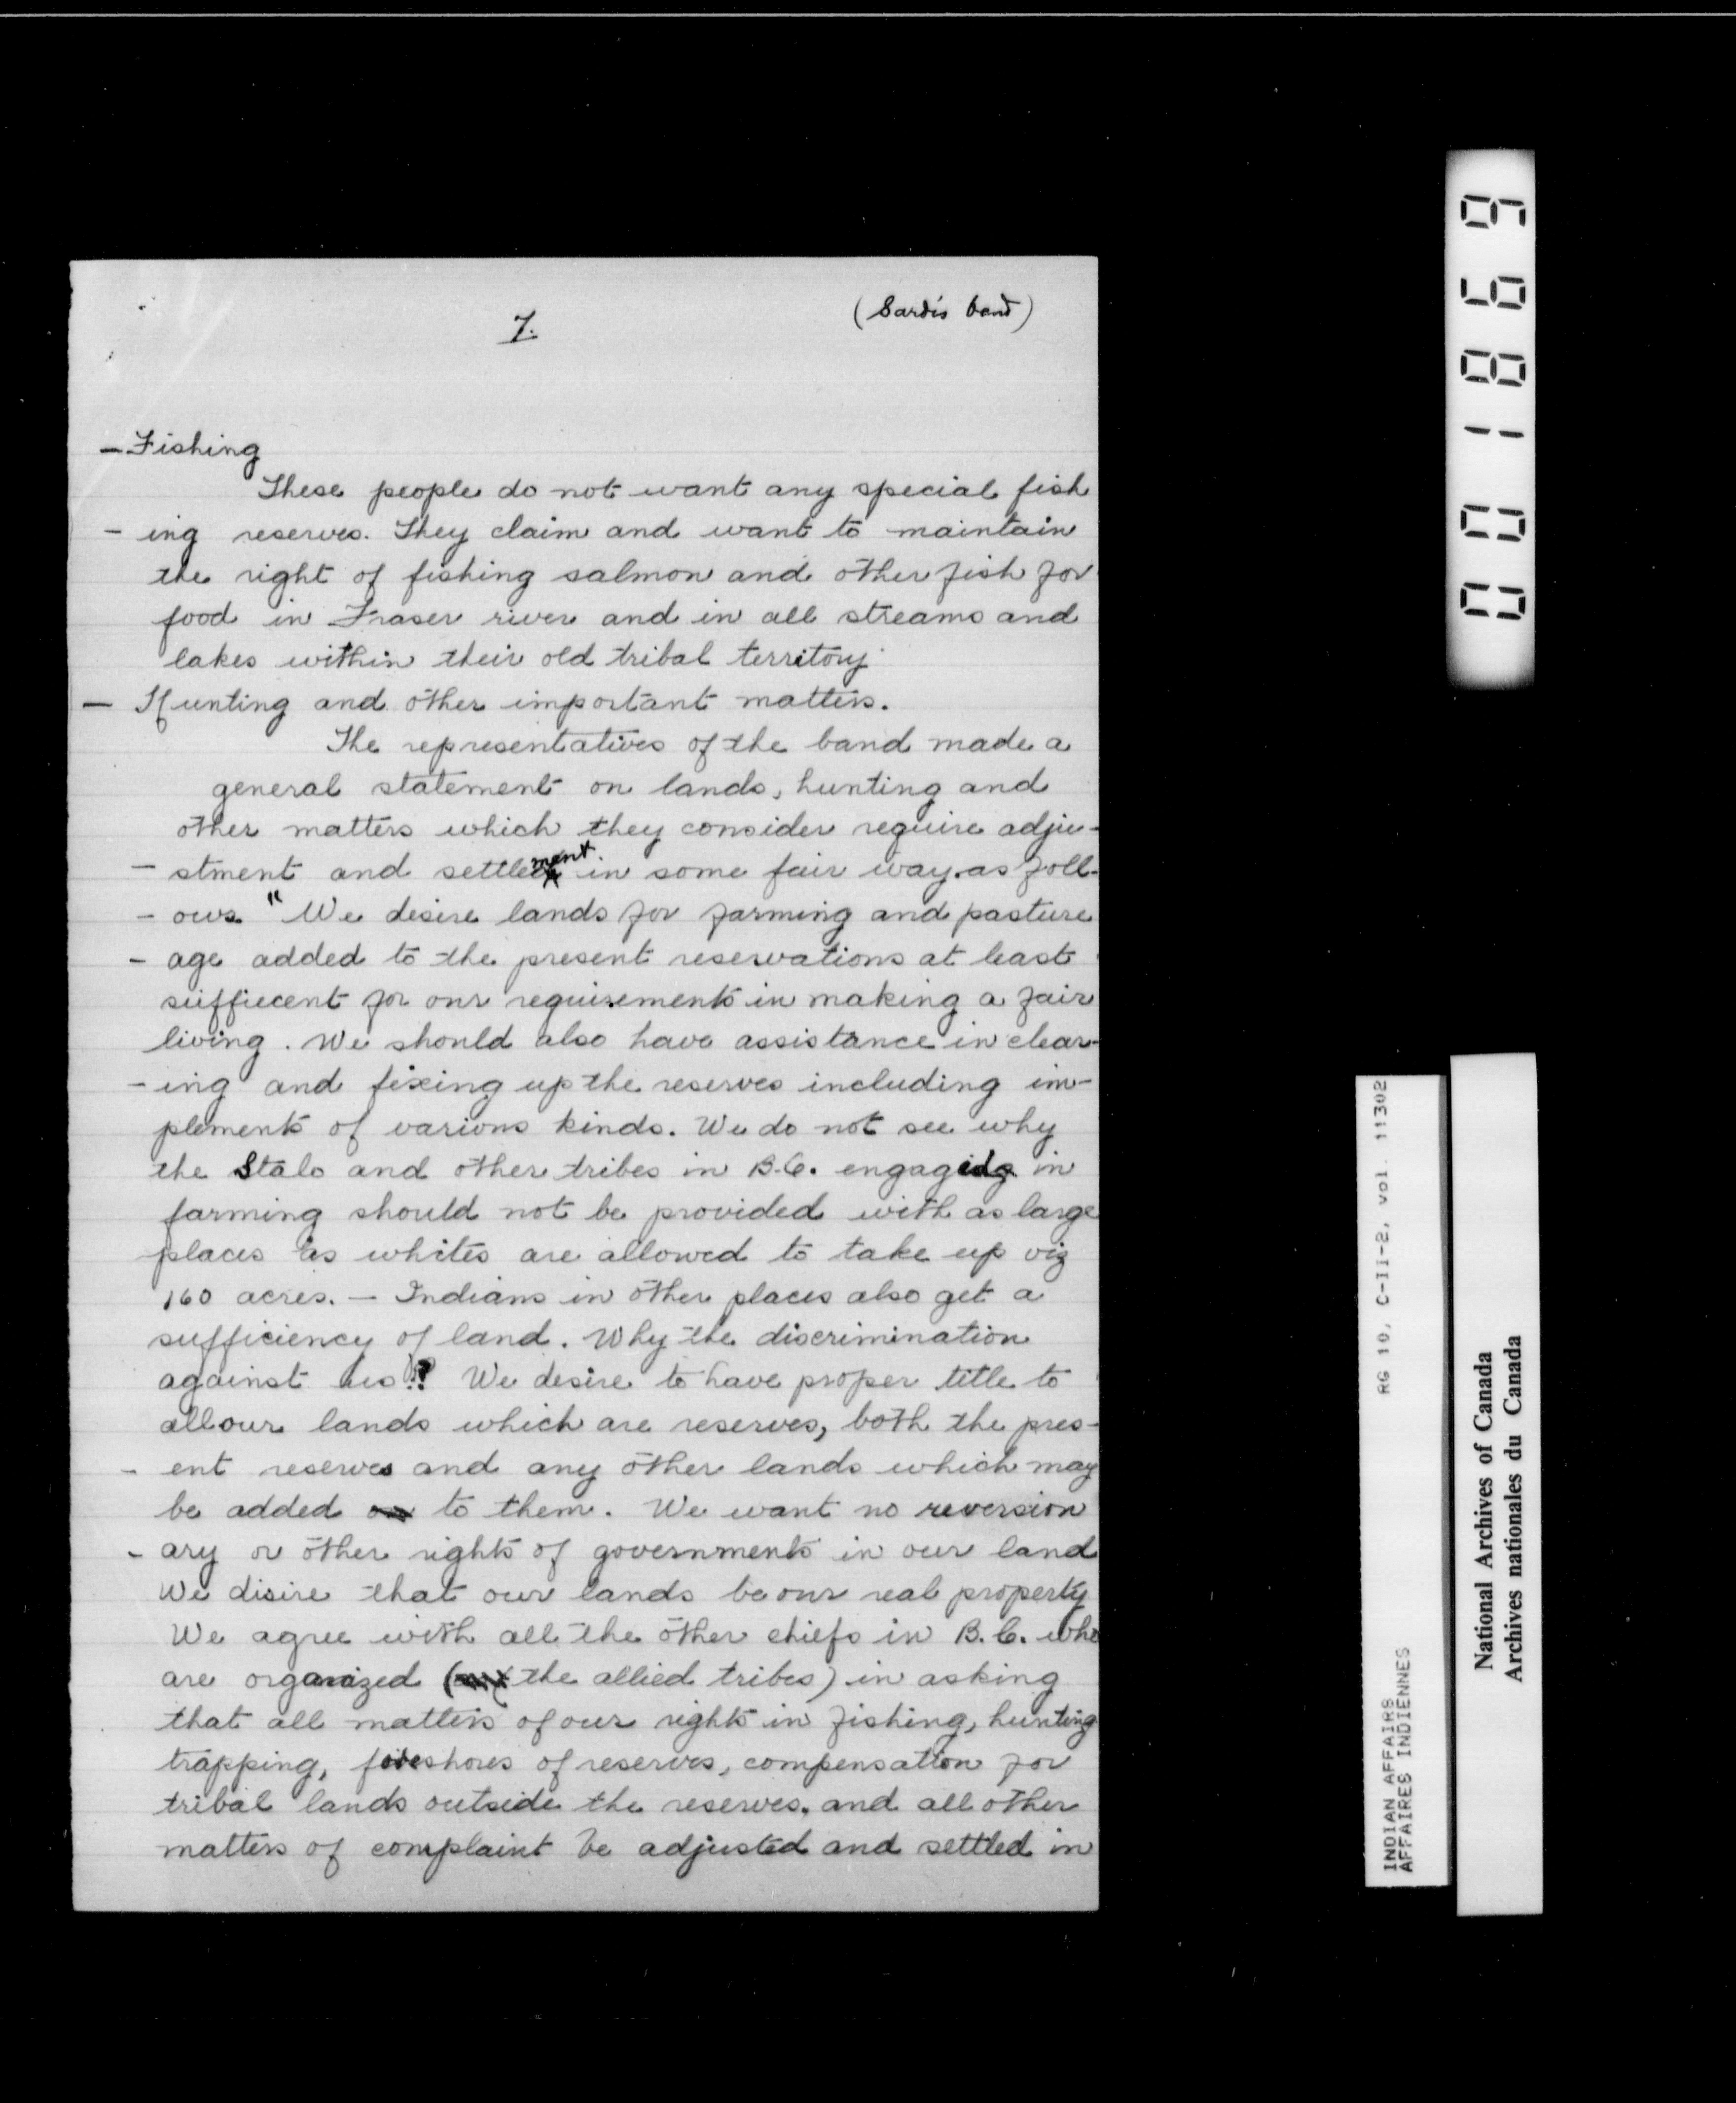 7.
(Sardis band)
— Fishing
These people do not want any special fish
- ing reserves. They claim and want to maintain
the right of fishing salmon and other fish for
food in Fraser river and in all streams and
lakes within their old tribal territory
— Hunting and other important matters.
The representatives of the band made a
general statement on lands, hunting and
other matters which they consider require adju-
- stment and settlement in some fair way as foll-
- ows "We desire lands for farming and pasture
- age added to the present reservations at least
suffiecent for our requirements in making a fair
living. We should also have assistance in clear-
- ing and fixing up the reserves including im-
plements of various kinds. We do not see why
the Stalo and other tribes in B.C. engaging in
farming should not be provided with as large
places as whites are allowed to take up viz
160 acres. — Indians in other places also get a
sufficiency of land. Why the discrimination
against us!? We desire to have proper title to
all our lands which are reserves, both the pres-
- ent reserves and any other lands which may
be added on to them. We want no reversion
- ary or other rights of governments in our land
We disire that our lands be our real property
We agree with all the other chiefs in B.C. who
are organized (the allied tribes) in asking
that all matters of our rights in fishing, hunting
trapping, foreshores of reserves, compensation for
tribal lands outside the reserves, and all other
matters of complaint be adjusted and settled in
001869
RG 10, C-II-2, vol. 11302
INDIAN AFFAIRS
AFFAIRES INDIENNES
National Archives of Canada
Archives nationales du Canada